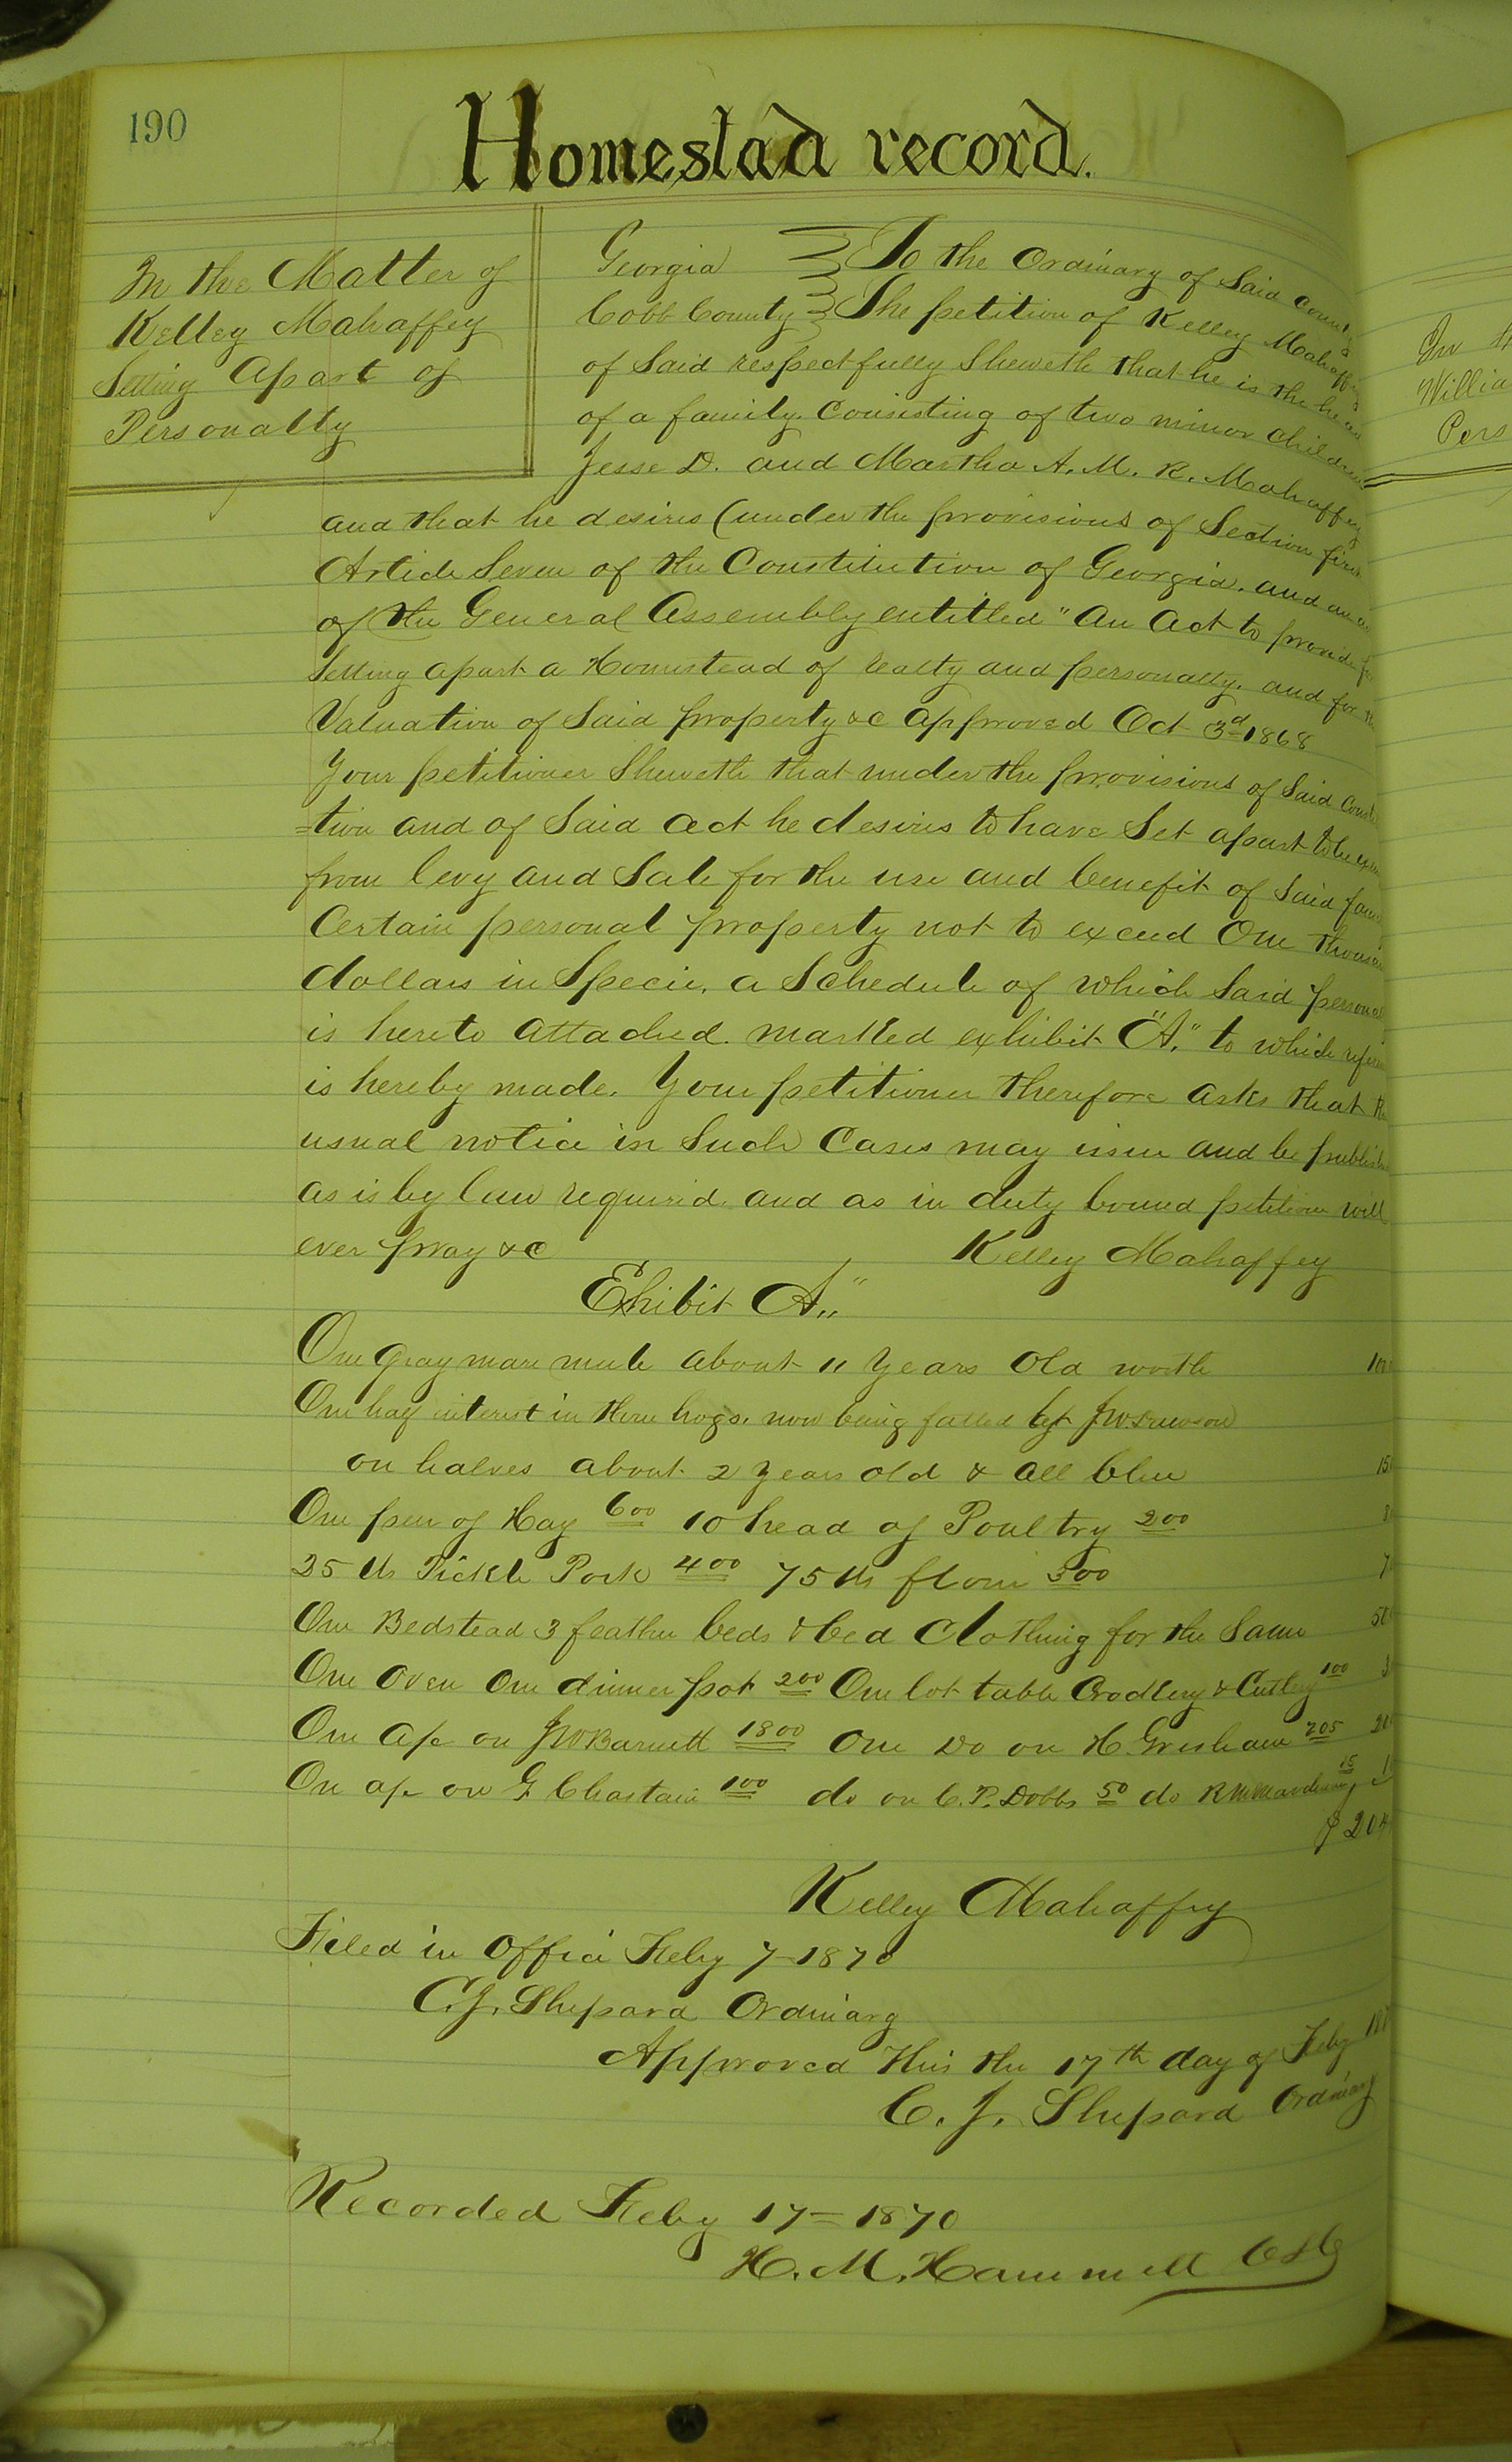 190
Homestead record.
In the Matter of
Kelley Mahaffey
Setting Apart of
Personalty
Georgia To the Ordinary of Said County
Cobb County The petition of Kelley Mahaffey
of Said respectfully Sheweth that he is the head
of a family. Consisting of two minor Children
Jesse D. and Martha A. M. R. Mahaffey
and that he desires (under the provisions of Section first
Article Seven of the Constitution of Georgia. and an
of the General Assembly entitled "An Act to provide for
Setting apart a Homestead of realty and personalty. and for the
Valuation of Said property &c approved Oct 3d 1868
Your petitioner Sheweth that under the provisions of Said
=tion and of Said act he desires to have Set apart to be
from levy and Sale for the use and benefit of Said
Certain personal property not to exceed One
dollars in Specie. a Schedule of which Said
is hereto attached. marked exhibit "A." to which
is hereby made. Your petitioner therefore asks that the
usual notice in Such Cases may issue and be
as is by law required. and as in duty bound petition will
ever pray &c Kelley Mahaffey
Exhibit A"
One gray mare mule about 11 years old worth
One half interest in three hogs. now being by
on halves about 2 years old & all blue
One pen of Hay 600 10 head of Poultry 200
25 lbs Pickle Pork 400 75 lbs flour 300
One Bedstead 3 feather beds & bed Clothing for the Same
One oven One dinner pot 200 One lot table & Cutlery 100
One a/c on JW Barnett 1800 One Do on H Gresham 205
On a/c on G Chastain 100 do on C. P. Dobbs 50 do 15
$ 204
Kelley Mahaffey
Filed in Office Feby 7 1870
C. J. Shepard Ordinary
Approved this the 17th day of Feby
C. J. Shepard Ordinary
Recorded Feby 17= 1870
H. M. Hammett CSC
In
Willia
Pers